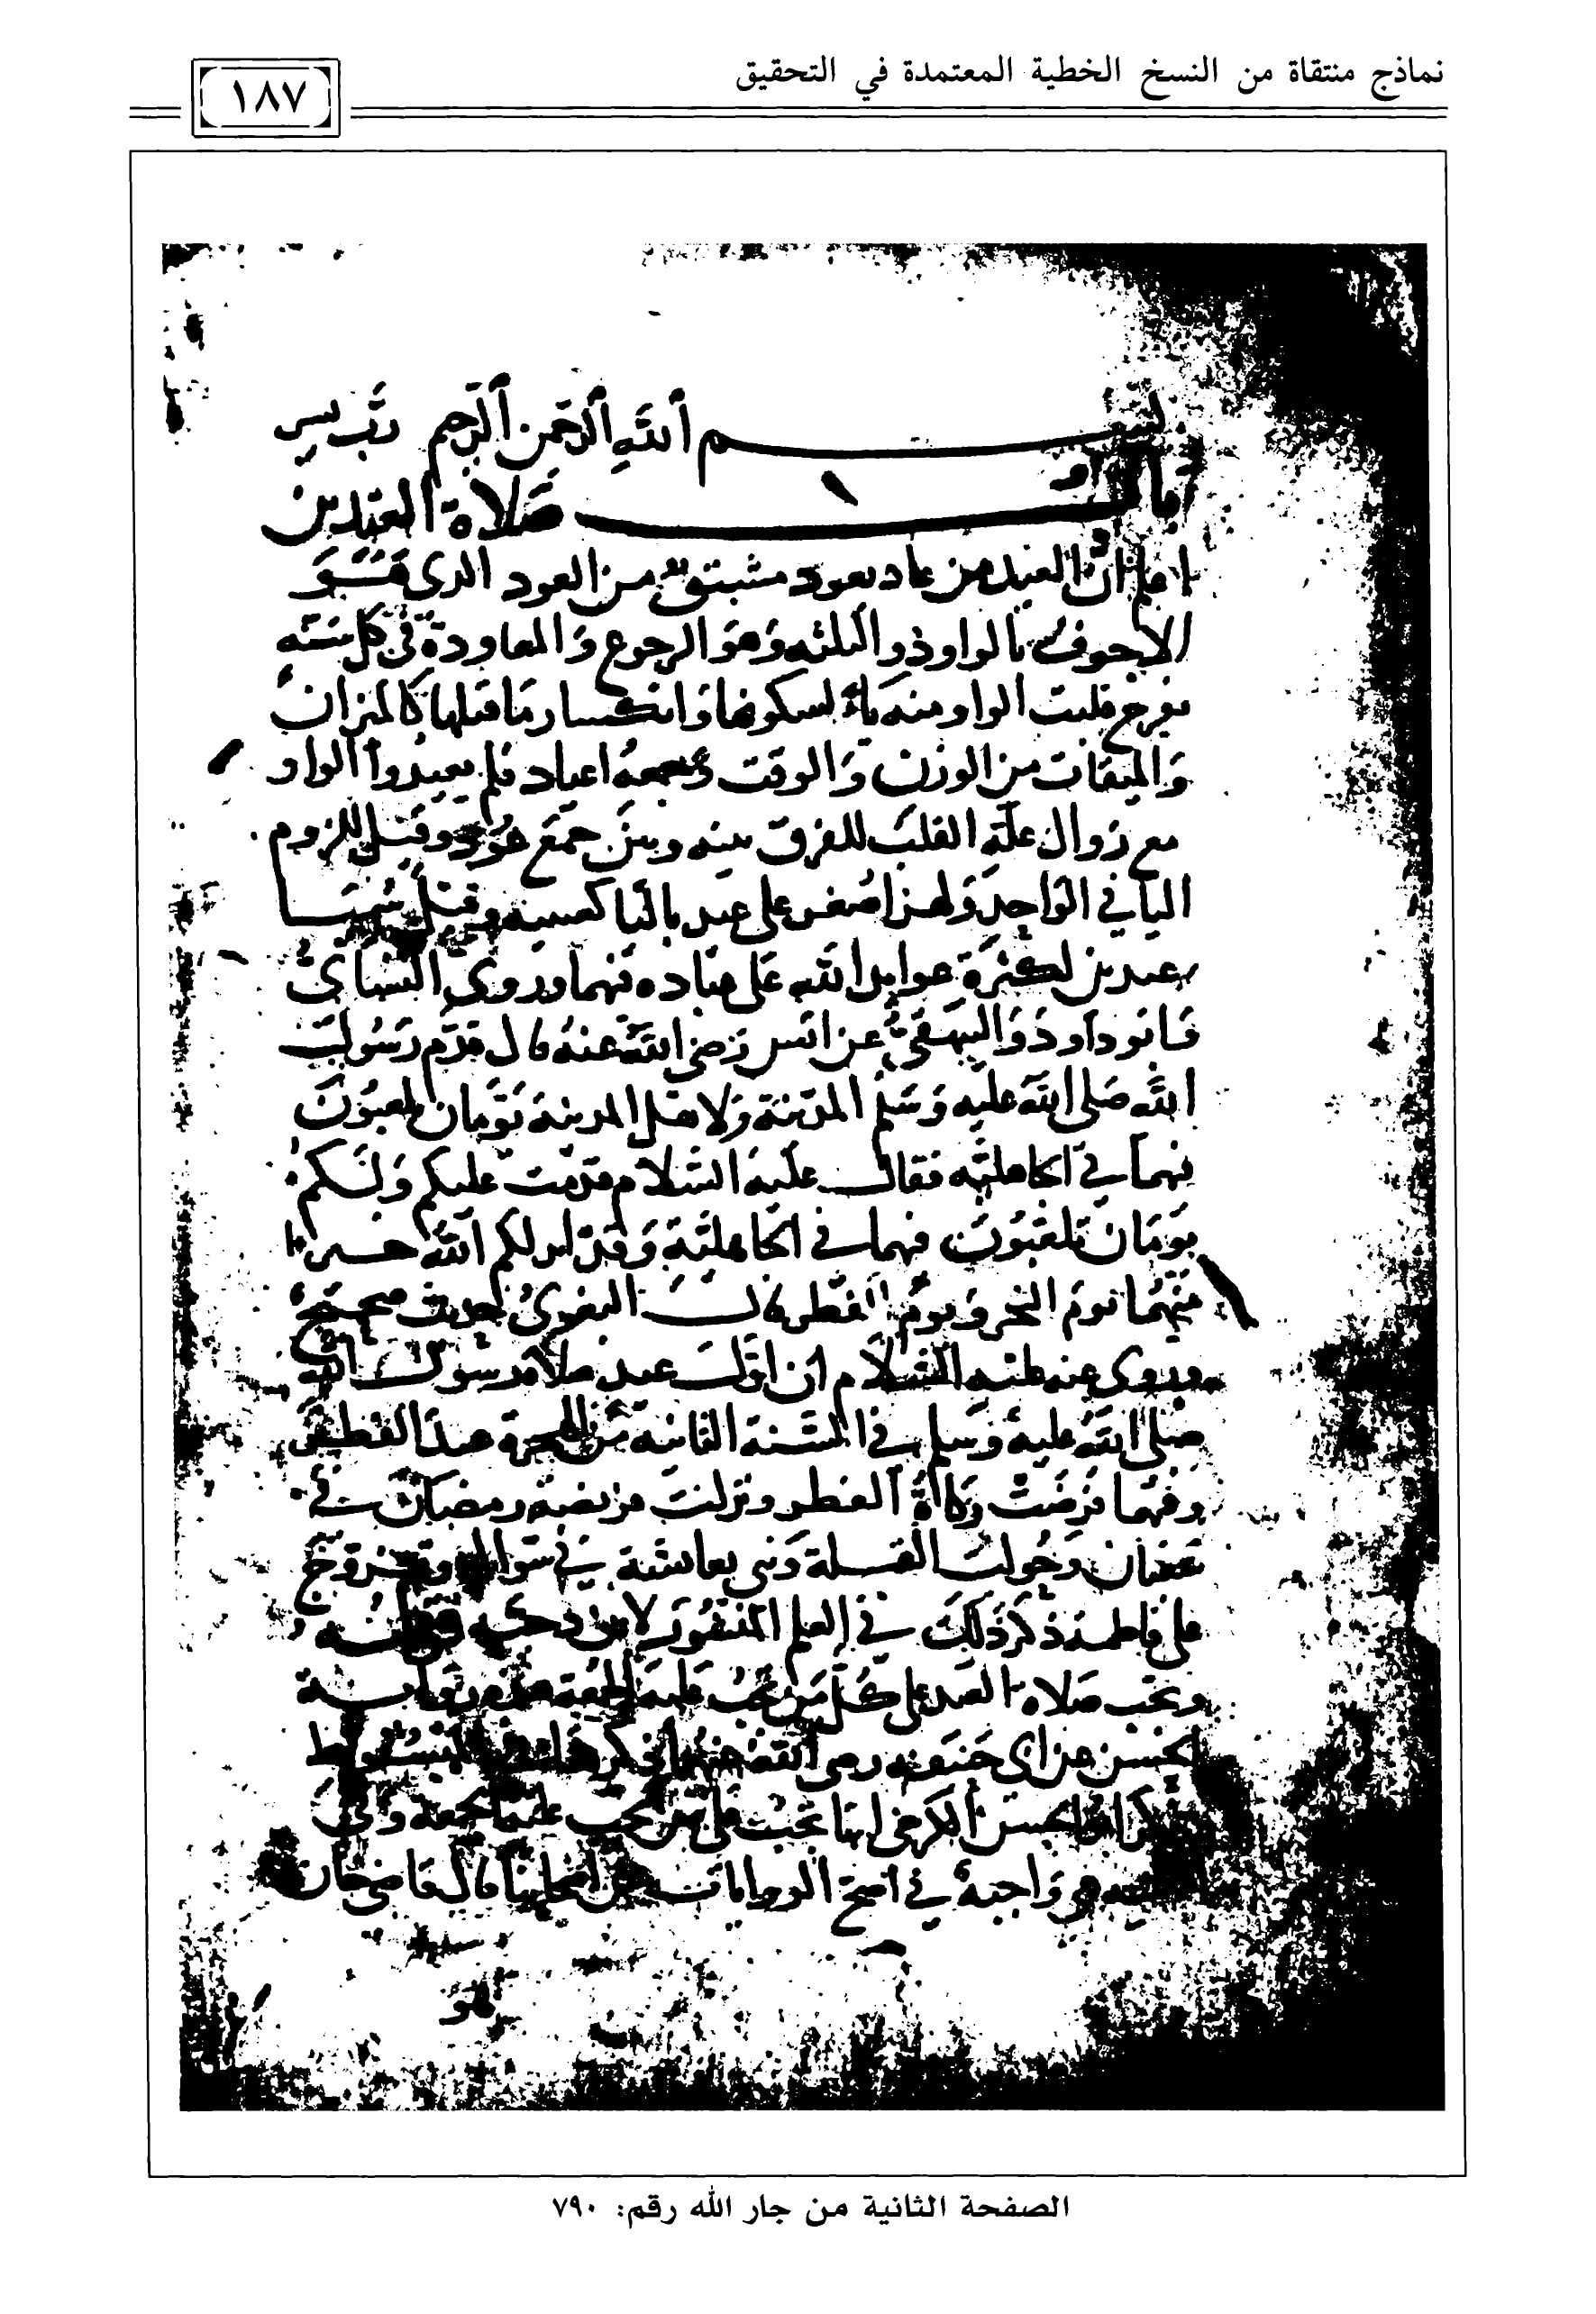 نماذج منتقاة من النسخ الخطية المعتمدة في التحقيق
١٨٧
بسم الله الرحمن الرحيم رب يسر
باب صلاة العيدين
اعلم ان العيد من عاد يعود مشتق من العود الذي هو
الاجوف بالواو ذو الثلثه وهو الرجوع والمعاودة في كل سنه
بفرح قلبت الواو منه ياء لسكونها وانكسار ما قبلها كالميزان
والميقات من الوزن والوقت وجمعه اعياد فلم يعيدوا الواو
مع زوال علة القلب للفرق بينه وبين جمع عود وقيل للزوم
اليا في الواحد ولهذا صغر على عييد باليا وقيل سميا
عيدين لكثرة عوايد الله على عباده فيهما وروى النسائي
وابو داود والبيهقي عن انس رضي الله عنه قال قدم رسول
الله صلى الله عليه وسلم المدينة ولاهل المدينة يومان يلعبون
فيهما في الجاهلية فقال عليه السلام قدمت عليكم ولكم
يومان تلعبون فيهما في الجاهلية وقد ابدلكم الله خيرا
منهما يوم النحر ويوم الفطر قال البغوي حديث صحيح
وروى عنه عليه السلام ان اول عيد صلاه رسول الله
صلى الله عليه وسلم في السنة الثانية من الهجرة عيد الفطر
وفيها فرضت زكاة الفطر ونزلت فريضة رمضان في
شعبان وحولت القبلة وبنى بعائشة في شوال وتزوج
علي فاطمة ذكر ذلك في العلم المنقول لابن دحية
وتجب صلاة العيد على كل من تجب عليه الجمعة رواية
الحسن عن ابي حنيفه رضي الله عنهما في المبسوط
الكرخي انها تجب على من تجب عليه الجمعة وفي
هي واجبة في اصح الروايات عن اصحابنا قال قاضي خان
هو
الصفحة الثانية من جار الله رقم: ٧٩٠